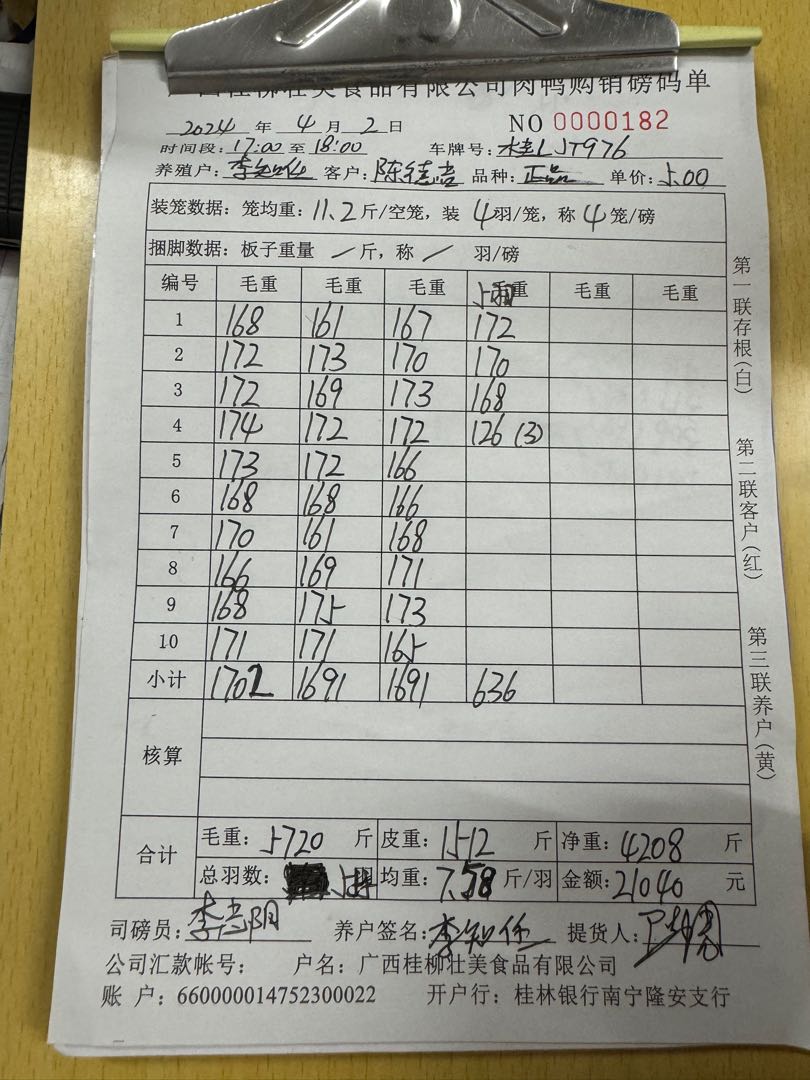 广西桂柳壮美食品有限公司肉鸭购销磅码单
2024 年 4 月 2 日 NO 0000182
时间段: 17:00 至 18:00 车牌号: 桂LJT976
养殖户: 李知任 客户: 陈德 品种: 正品 单价: 5.00
装笼数据: 笼均重: 11.2 斤/空笼, 装 4 羽/笼, 称 4 笼/磅
捆脚数据: 板子重量 / 斤, 称 / 羽/磅
编号 毛重 毛重 毛重 毛重 毛重 毛重
1 168 161 167 172
2 172 173 170 170
3 172 169 173 168
4 174 172 172 126 (3)
5 173 172 166
6 168 168 166
7 170 161 168
8 166 169 171
9 168 175 173
10 171 171 165
小计 1702 1691 1691 636
核算
合计 毛重: 5720 斤 皮重: 1512 斤 净重: 4208 斤
总羽数: 羽 均重: 7.58 斤/羽 金额: 21040 元
司磅员: 李 阴 养户签名: 李知任 提货人:
公司汇款帐号: 户名: 广西桂柳壮美食品有限公司
账 户: 660000014752300022 开户行: 桂林银行南宁隆安支行
第一联存根(白)
第二联客户(红)
第三联养户(黄)